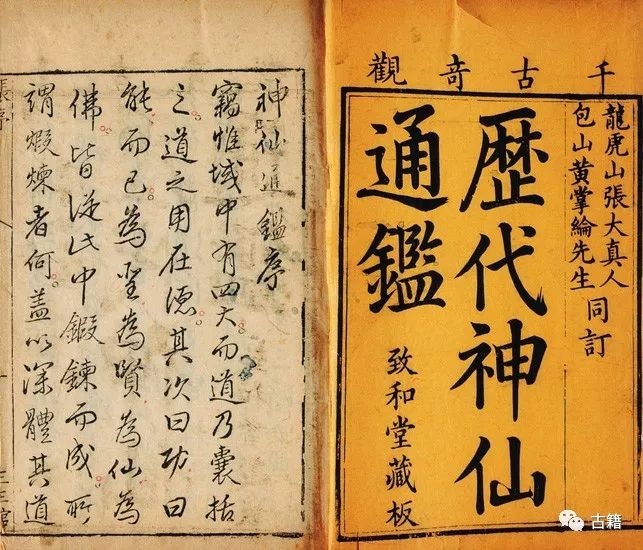 千古奇觀
龍虎山張大真人
包山黃掌綸先生
同訂
歷代神仙
通鑑
致和堂藏板
神仙通鑑序
竊惟域中有四大而道乃囊括
之道之用在德其次曰功曰
能而已為聖為賢為仙為
佛皆從此中鍜鍊而成所
謂煆煉者何蓋以深體其道
古籍